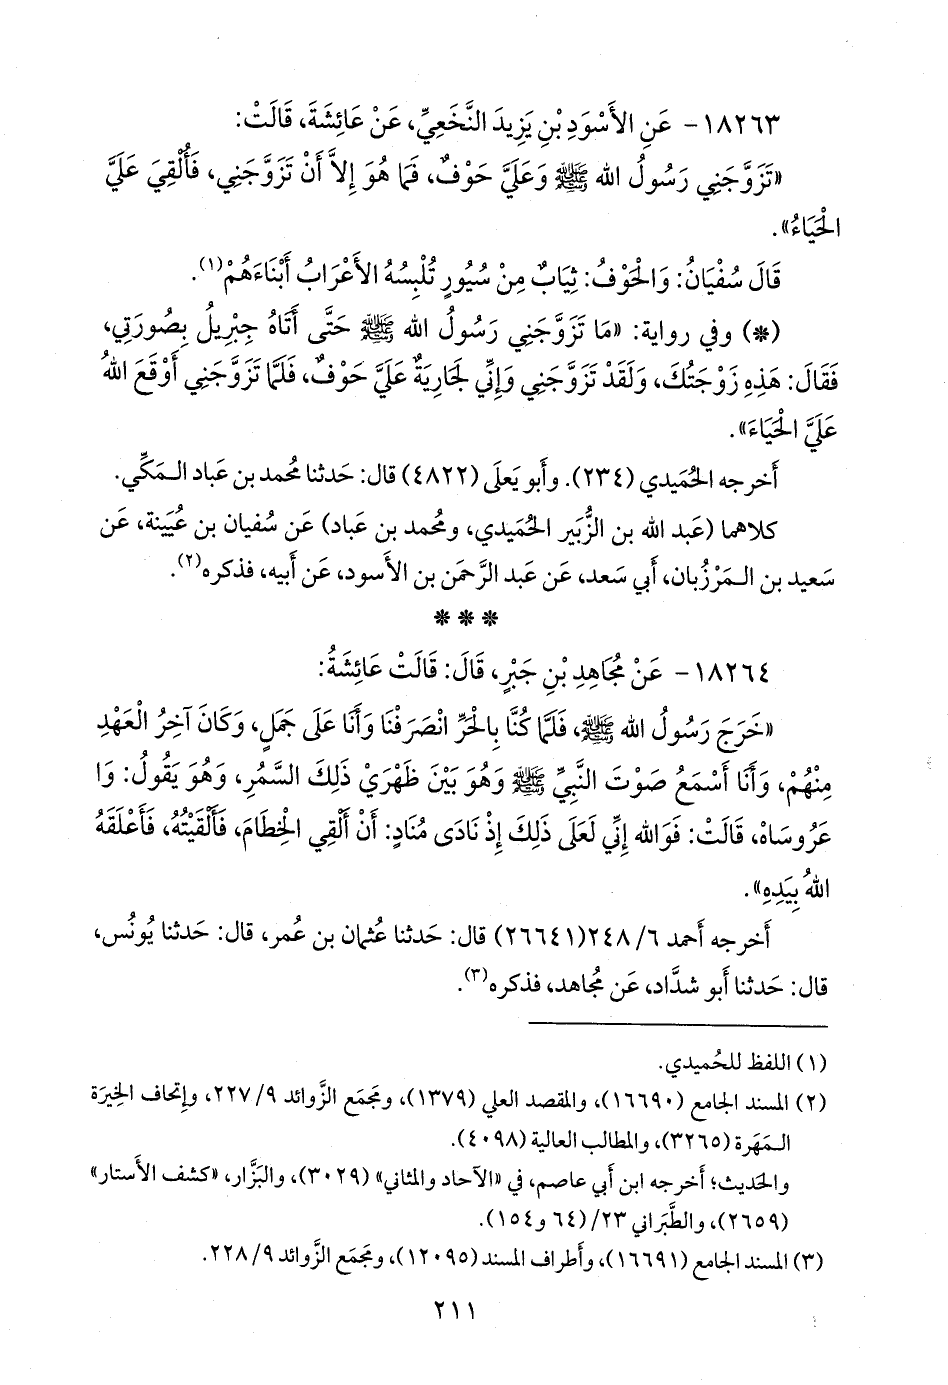 ١٨٢٦٣- عَنِ الأَسْوَدِ بْنِ يَزِيدَ النَّخَعِيِّ، عَنْ عَائِشَةَ، قَالَتْ:
«تَزَوَّجَنِي رَسُولُ الله ﷺ وَعَلَيَّ حَوْفٌ، فَمَا هُوَ إِلاَّ أَنْ تَزَوَّجَنِي، فَأُلْقِيَ عَلَيَّ
الْحَيَاءُ».
قَالَ سُفْيَانُ: وَالْحَوْفُ: ثِيَابٌ مِنْ سُيُورٍ تُلْبِسُهُ الأَعْرَابُ أَبْنَاءَهُمْ(١).
(*) وفي رواية: «مَا تَزَوَّجَنِي رَسُولُ الله ﷺ حَتَّى أَتَاهُ جِبْرِيلُ بِصُورَتِي،
فَقَالَ: هَذِهِ زَوْجَتُكَ، وَلَقَدْ تَزَوَّجَنِي وَإِنِّي لَجَارِيَةٌ عَلَيَّ حَوْفٌ، فَلَمَّا تَزَوَّجَنِي أَوْقَعَ اللهُ
عَلَيَّ الْحَيَاءَ».
أخرجه الحُمَيدي (٢٣٤). وأبو يَعلَى (٤٨٢٢) قال: حَدثنا مُحمد بن عَباد الـمَكِّي.
كلاهما (عَبد الله بن الزُّبَير الحُمَيدي، ومُحمد بن عَباد) عَن سُفيان بن عُيَينة، عَن
سَعيد بن الـمَرْزُبان، أَبي سَعد، عَن عَبد الرَّحمَن بن الأَسود، عَن أَبيه، فذكره(٢).
* * *
١٨٢٦٤- عَنْ مُجَاهِدِ بْنِ جَبْرٍ، قَالَ: قَالَتْ عَائِشَةُ:
«خَرَجَ رَسُولُ الله ﷺ، فَلَمَّا كُنَّا بِالْحَرِّ انْصَرَفْنَا وَأَنَا عَلَى جَمَلٍ، وَكَانَ آخِرُ الْعَهْدِ
مِنْهُمْ، وَأَنَا أَسْمَعُ صَوْتَ النَّبِيِّ ﷺ وَهُوَ بَيْنَ ظَهْرَيْ ذَلِكَ السَّمُرِ، وَهُوَ يَقُولُ: وَا
عَرُوسَاهْ، قَالَتْ: فَوَالله إِنِّي لَعَلَى ذَلِكَ إِذْ نَادَى مُنَادٍ: أَنْ أَلْقِي الْخِطَامَ، فَأَلْقَيْتُهُ، فَأَعْلَقَهُ
اللهُ بِيَدِهِ».
أخرجه أحمد ٦/ ٢٤٨(٢٦٦٤١) قال: حَدثنا عُثمان بن عُمر، قال: حَدثنا يُونُس،
قال: حَدثنا أَبو شدَّاد، عَن مُجاهد، فذكره(٣).
(١) اللفظ للحُميدي.
(٢) المسند الجامع (١٦٦٩٠)، والمقصد العلي (١٣٧٩)، ومَجمَع الزَّوائد ٩/ ٢٢٧، وإتحاف الخِيرَة
الـمَهَرة (٣٢٦٥)، والمطالب العالية (٤٠٩٨).
والحَديث؛ أخرجه ابن أبي عاصم، في «الآحاد والمثاني» (٣٠٢٩)، والبَزَّار، «كشف الأستار»
(٢٦٥٩)، والطَّبَراني ٢٣/ (٦٤ و١٥٤).
(٣) المسند الجامع (١٦٦٩١)، وأطراف المسند (١٢٠٩٥)، ومَجمَع الزَّوائد ٩/ ٢٢٨.
٢١١